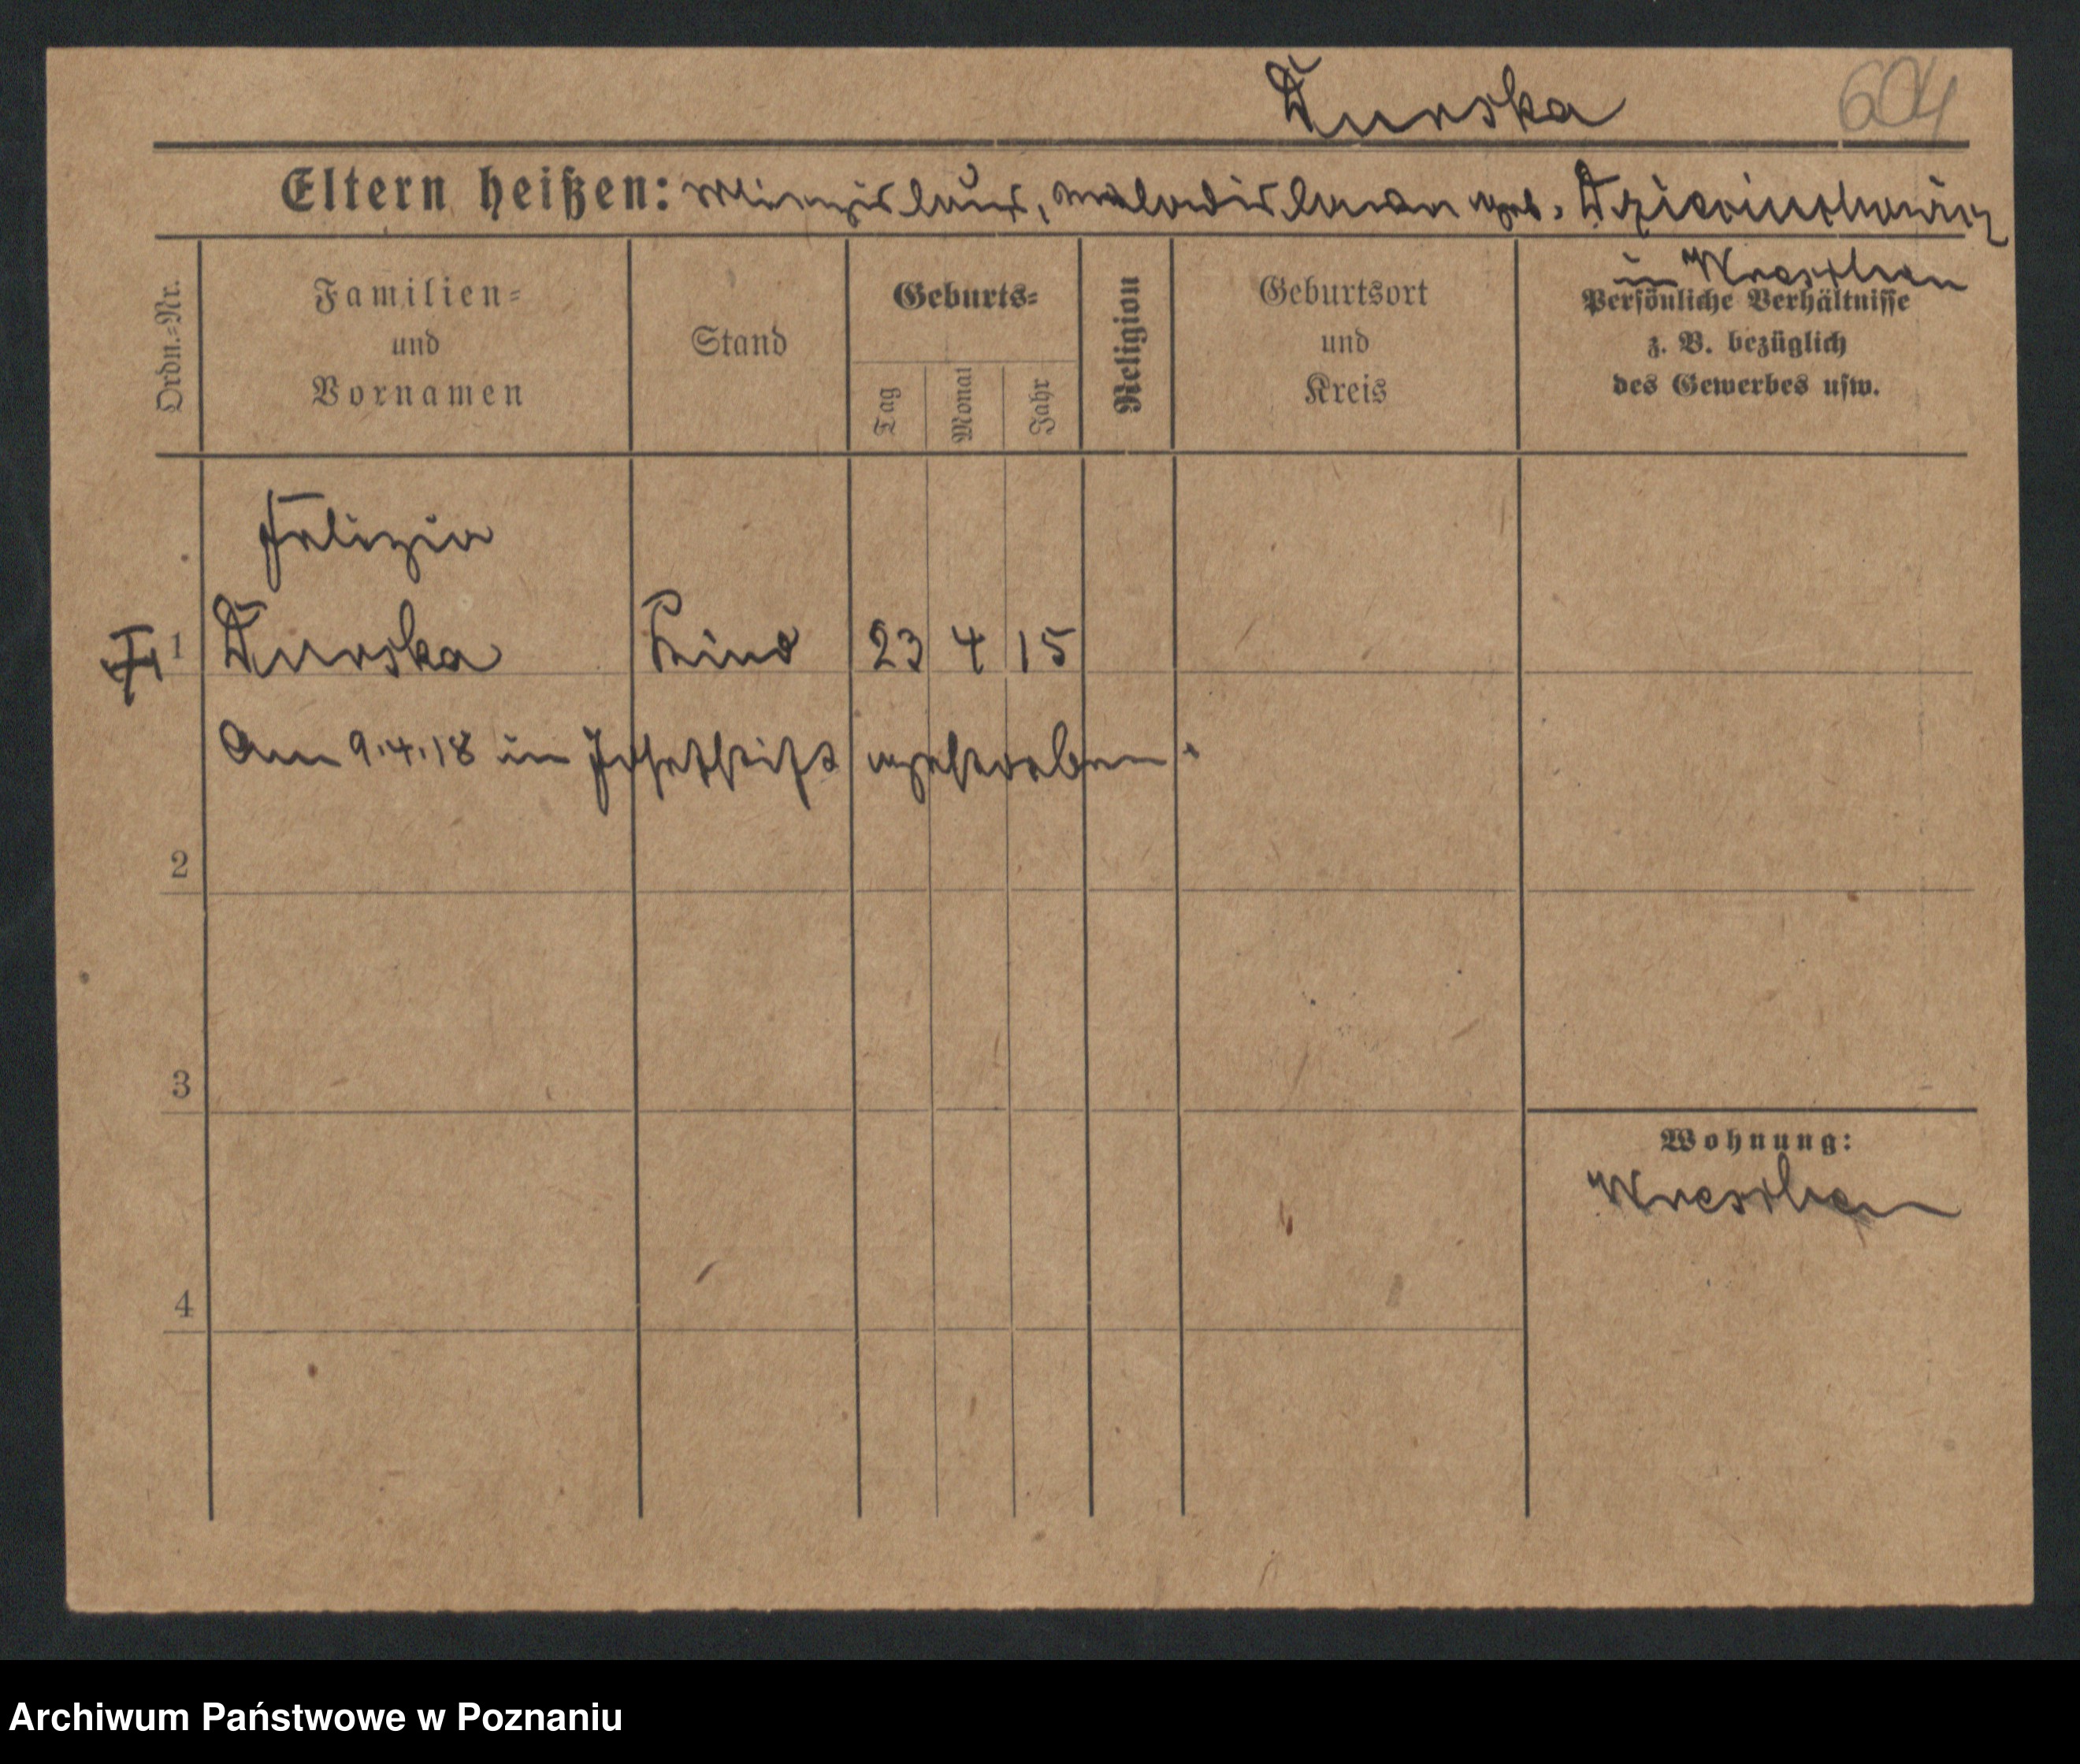 Durska 604
Eltern heißen: Miezislaus, geb.
in Wreschen
Ordn.-Nr.
Familien-
und
Vornamen
Stand
Geburts-
Tag
Monat
Jahr
Religion
Geburtsort
und
Kreis
Persönliche Verhältnisse
z. B. bezüglich
des Gewerbes usw.
Felizia
1 Durska Kind 23 4 15
Am 9.4.18 in Josefstift gestorben.
2
3
Wohnung:
Wreschen
4
Archiwum Państwowe w Poznaniu